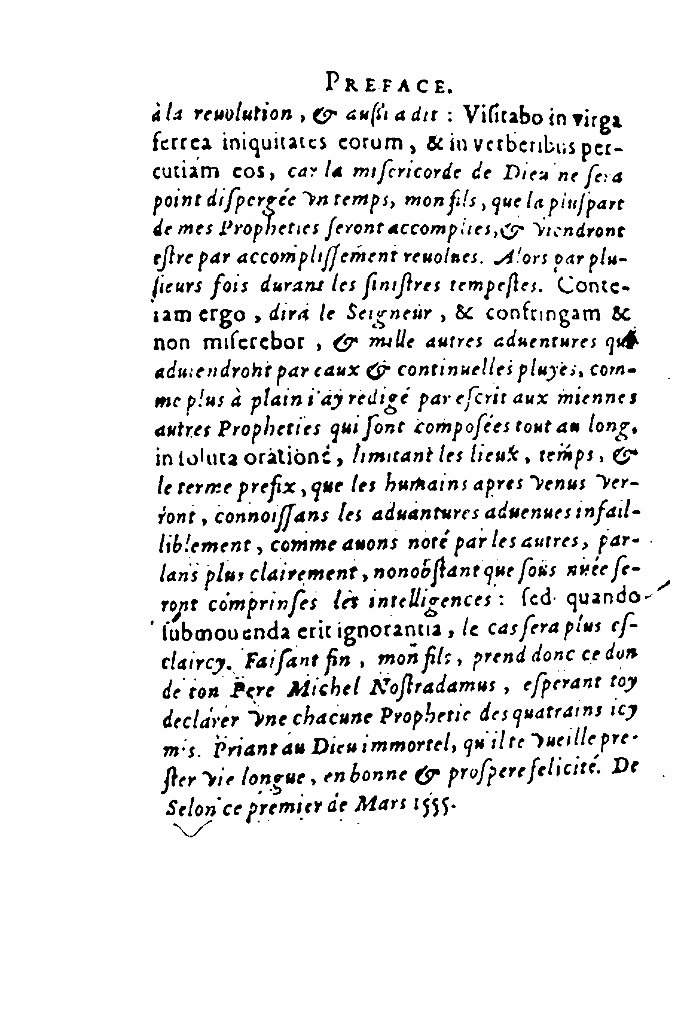 PREFACE.
à la reuolution, & auſſi a dit : Viſitabo in virga
ferrea iniquitates eorum, & in verberibus per-
cutiam eos, car la miſericorde de Dieu ne ſera
point diſpergée vn temps, mon fils, que la pluſpart
de mes Propheties ſeront accomplies, & viendront
eſtre par accompliſſement reuolues. Alors par plu-
ſieurs fois durant les ſiniſtres tempeſtes. Conte-
ram ergo, dira le Seigneur, & confringam &
non miſerebor, & mille autres aduentures qui
aduiendront par eaux & continuelles pluyes, com-
me plus à plain i'ay redigé par eſcrit aux miennes
autres Propheties qui ſont compoſées tout au long,
in ſoluta oratione, limitant les lieux, temps, &
le terme prefix, que les humains apres venus ver-
ront, connoiſſans les aduantures aduenues infail-
liblement, comme auons noté par les autres, par-
lans plus clairement, nonobſtant que ſous nuée ſe-
ront comprinſes les intelligences : ſed quando
ſubmouenda erit ignorantia, le cas ſera plus eſ-
claircy. Faiſant fin, mon fils, prend donc ce don
de ton Pere Michel Noſtradamus, eſperant toy
declarer vne chacune Prophetie des quatrains icy
mis. Priant au Dieu immortel, qu'il te vueille pre-
ſter vie longue, en bonne & proſpere felicité. De
Selon ce premier de Mars 1555.